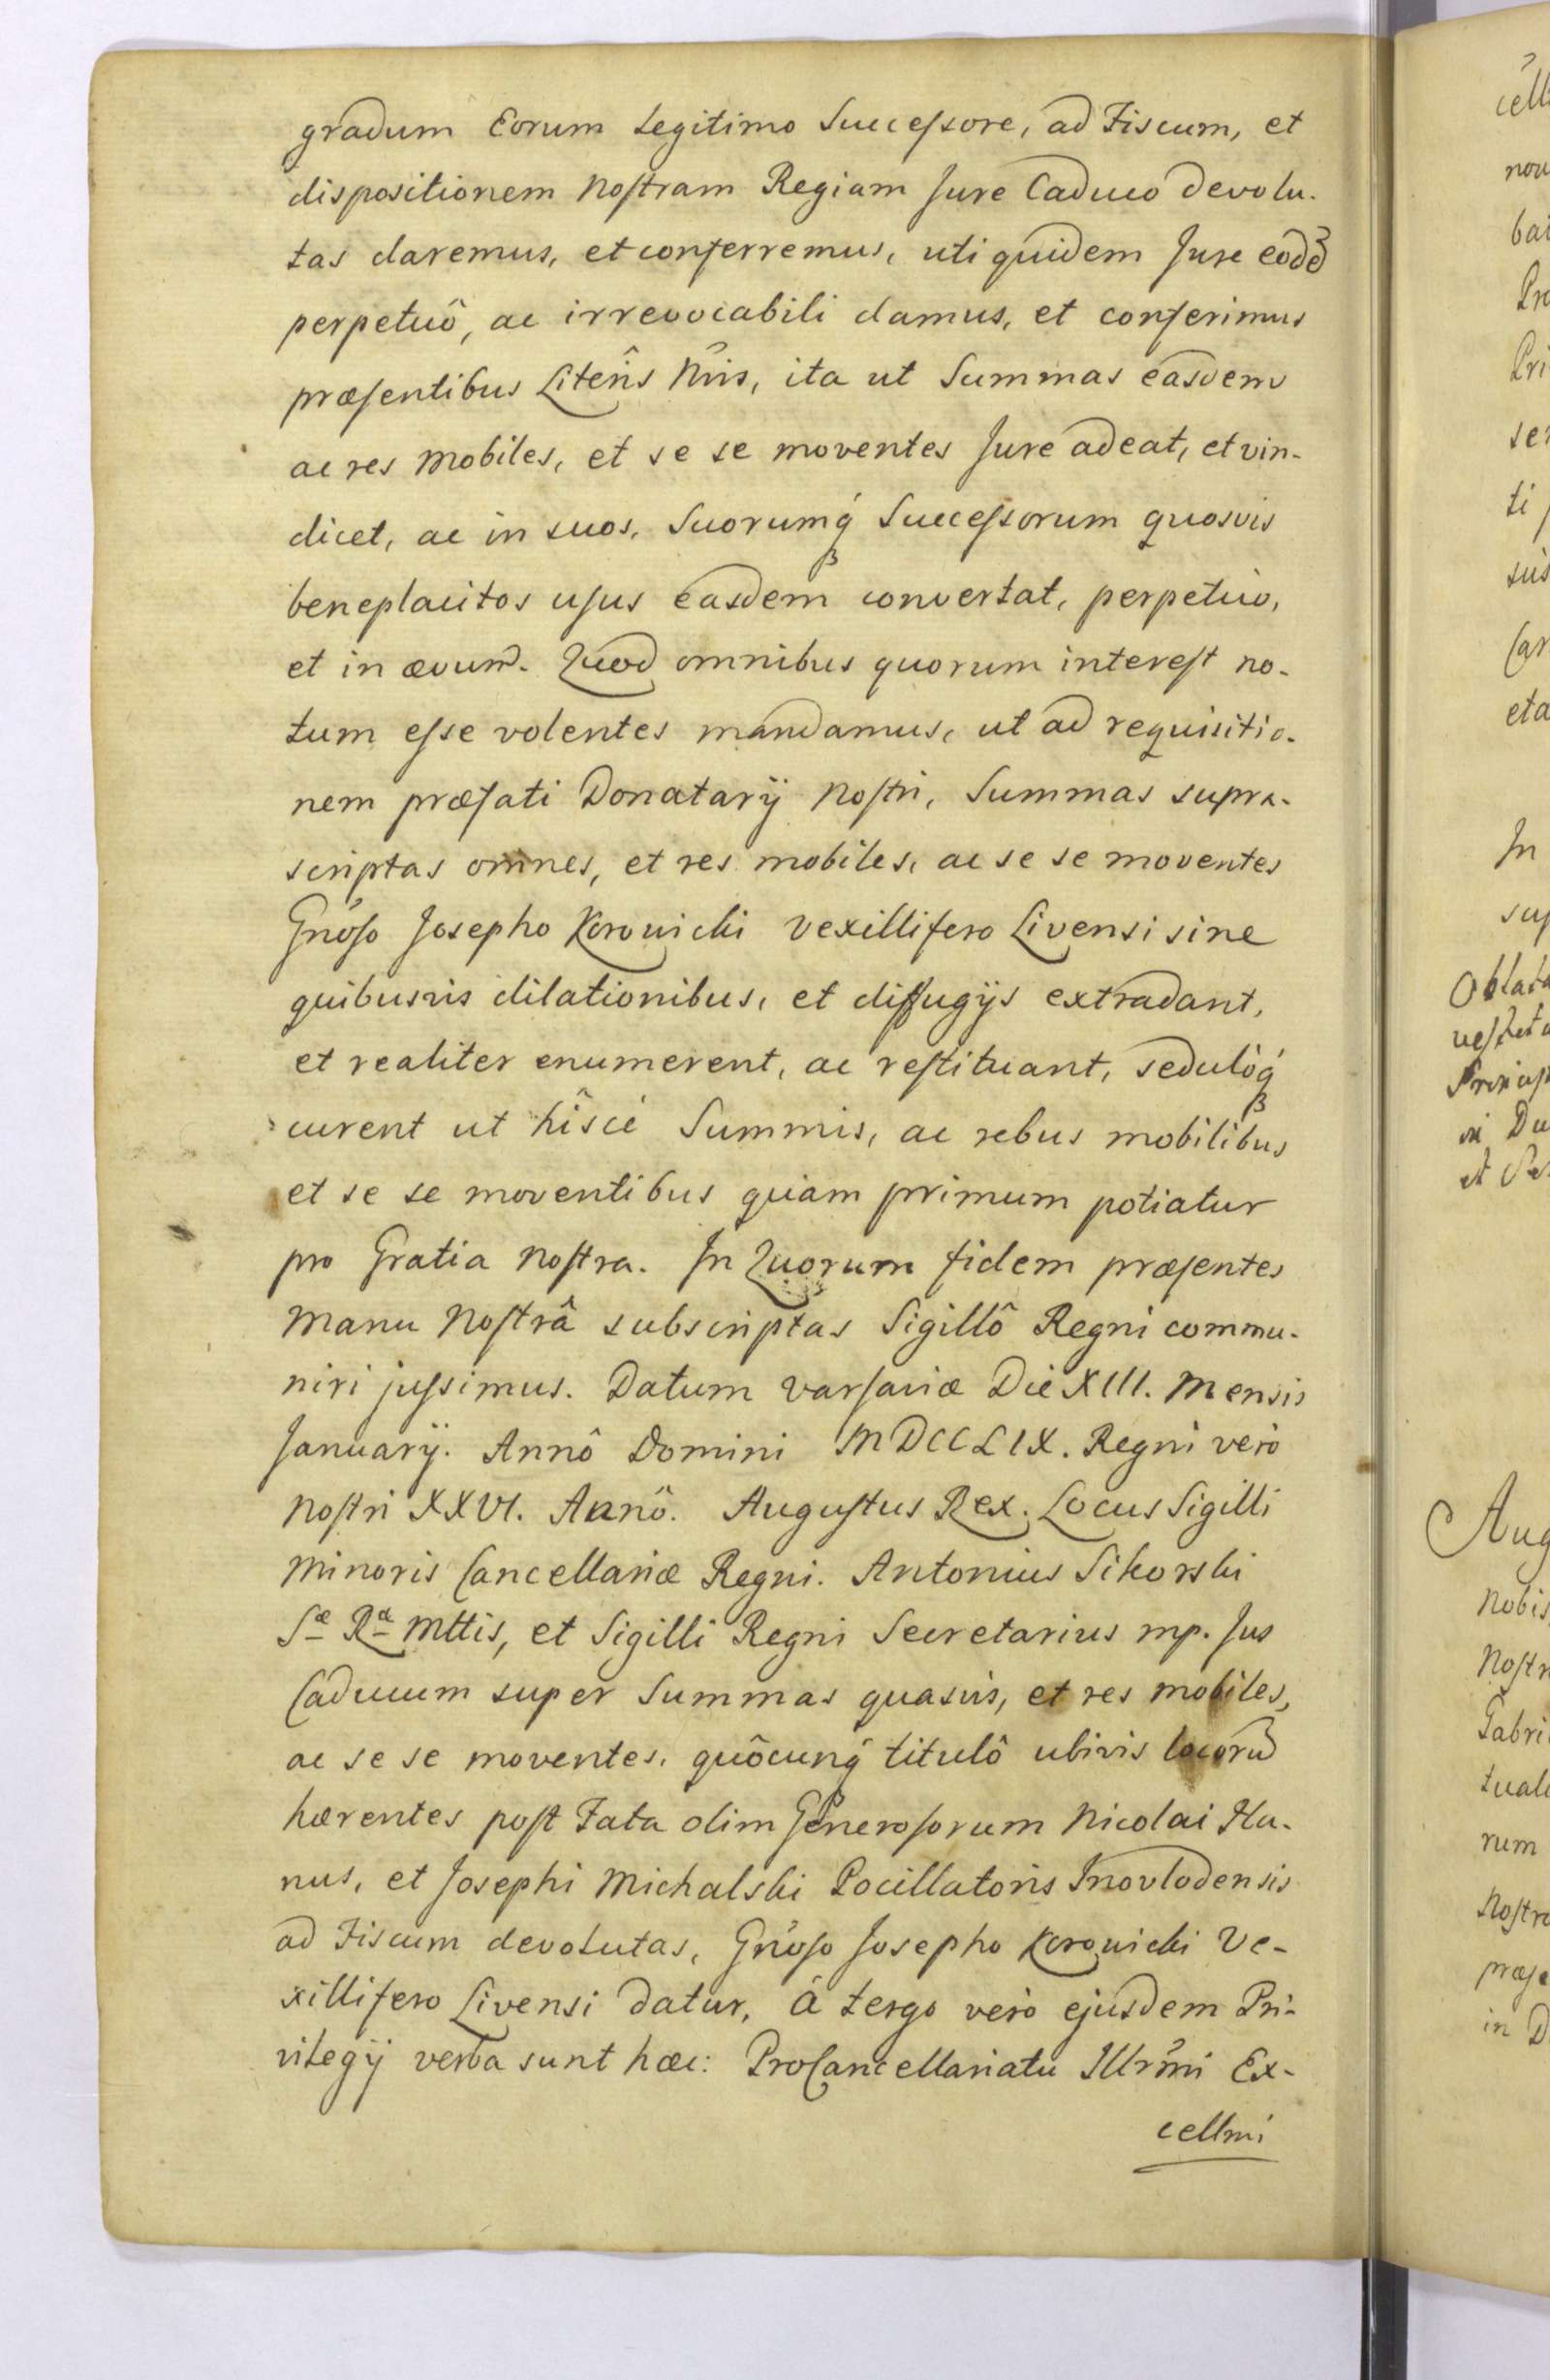 gradum Eorum Legitimo Successore, ad Fiscum, et
dispositionem Nostram Regiam Jure Caduco devolu-
tas daremus, et conferremus, uti quidem Jure eodē
perpetuô, ac irrevocabili damus, et conferimus
præsentibus Literîs Nris, ita ut Summas easdem
ac res mobiles, et se se moventes Jure adeat, et vin-
dicet, ac in suos, Suorumq́ Successorum quosvis
beneplacitos usus easdem convertat, perpetuo,
et in ævum. Quod omnibus quorum interest no-
tum esse volentes mandamus, ut ad requisitio-
nem præfati Donatarÿ Nostri, Summas supra-
scriptas omnes, et res mobiles, ac se se moventes
Gnoso Josepho Korowicki Vexillifero Livensi sine
quibusvis dilationibus, et diffugÿs extradant,
et realiter enumerent, ac restituant, sedulóq́
curent ut hîsce Summis, ac rebus mobilibus
et se se moventibus quam primum potiatur
pro Gratia Nostra. In Quorum fidem præsentes
Manu Nostrâ subscriptas Sigillô Regni commu-
niri jussimus. Datum Varsaviæ Die XIII. Mensis
Januarÿ. Annô Domini MDCCLIX. Regni verò
Nostri XXVI. Annô. Augustus Rex. Locus Sigilli
Minoris Cancellariæ Regni. Antonius Sikorski
Sæ Ræ Mttis, et Sigilli Regni Secretarius mp. Jus
Caducum super Summas quasvis, et res mobiles,
ac se se moventes, quôcunq́ titulô ubivis locorū
hærentes post Fata olim Generosorum Nicolai
nus, et Josephi Michalski Pocillatoris Inovlodensis
ad Fiscum devolutas, Gnoso Josepho Korowicki Ve-
xillifero Livensi datur, â tergo verò ejusdem Pri-
vilegÿ verba sunt hæc: ProCancellariatu Illrmi Ex-
cellmi